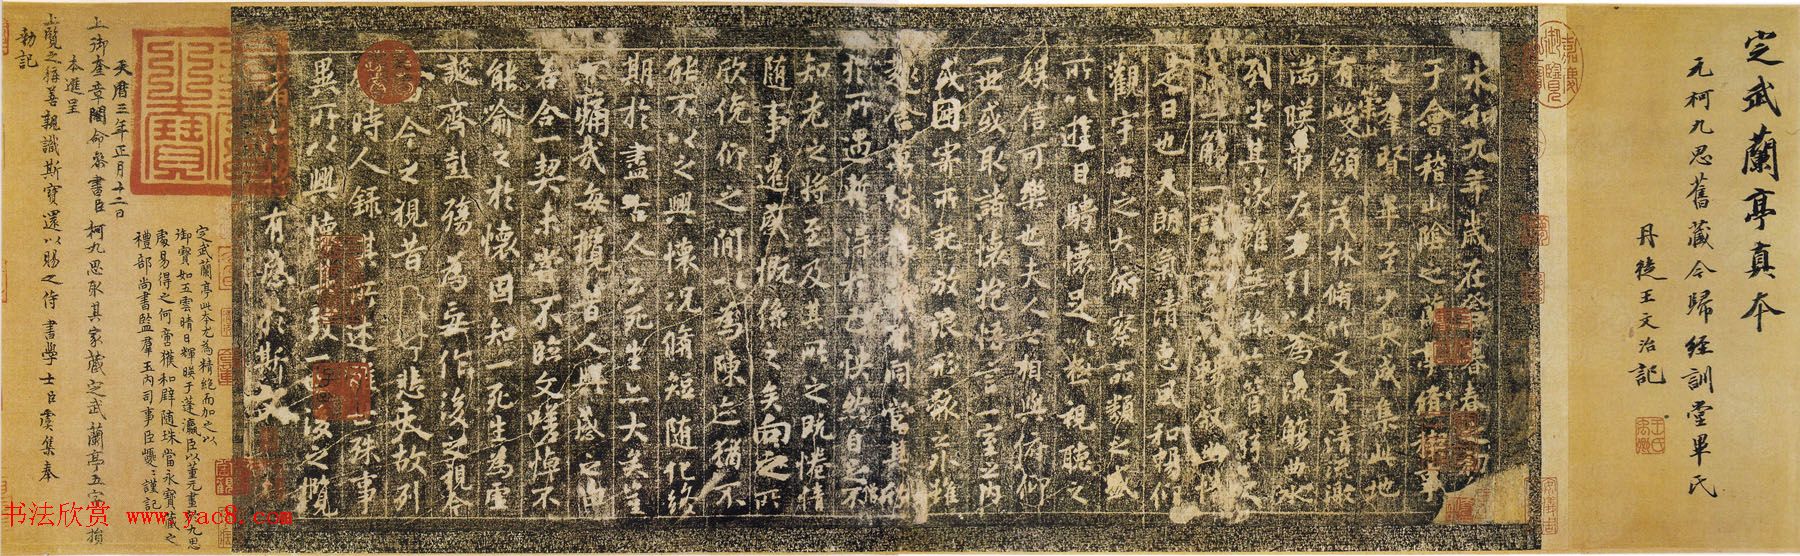 定武蘭亭真本
元柯九思舊藏今歸經訓堂畢氏
丹徒王文治記
永和九年歲在癸丑暮春之初
于會稽山陰之蘭亭脩禊事
也羣賢畢至少長咸集此地
有峻領茂林脩竹又有清流激
湍暎帶左右引以為流觴曲水
列坐其次雖無絲竹管弦之
盛一觴一詠亦足以暢敘幽情
是日也天朗氣清惠風和暢仰
觀宇宙之大俯察品類之盛
所以遊目騁懷足以極視聽之
娛信可樂也夫人之相與俯仰
一世或取諸懷抱悟言一室之內
或因寄所託放浪形骸之外雖
趣舍萬殊靜躁不同當其欣
於所遇暫得於己快然自足不
知老之將至及其所之既惓情
隨事遷感慨係之矣向之所
欣俛仰之間以為陳迹猶不
能不以之興懷況脩短隨化終
期於盡古人云死生亦大矣豈
不痛哉每攬昔人興感之由
若合一契未嘗不臨文嗟悼不
能喻之於懷固知一死生為虛
誕齊彭殤為妄作後之視今
亦由今之視昔悲夫故列
敘時人錄其所述雖世殊事
異所以興懷其致一也後之攬
者亦將有感於斯文
定武蘭亭此本尤為精絕而加之以
御寶如五雲晴日輝暎于蓬瀛臣以董元畫易九思
處易得之何啻獲和辟隨珠當永寶藏之
禮部尚書監羣玉內司事臣巙謹記
天曆三年正月十二日
上御奎章閣命參書臣柯九思取其家藏定武蘭亭五字損
本進呈
上覽之稱善親識斯寶還以賜之侍書學士臣虞集奉
勅記
书法欣赏 www.yac8.com